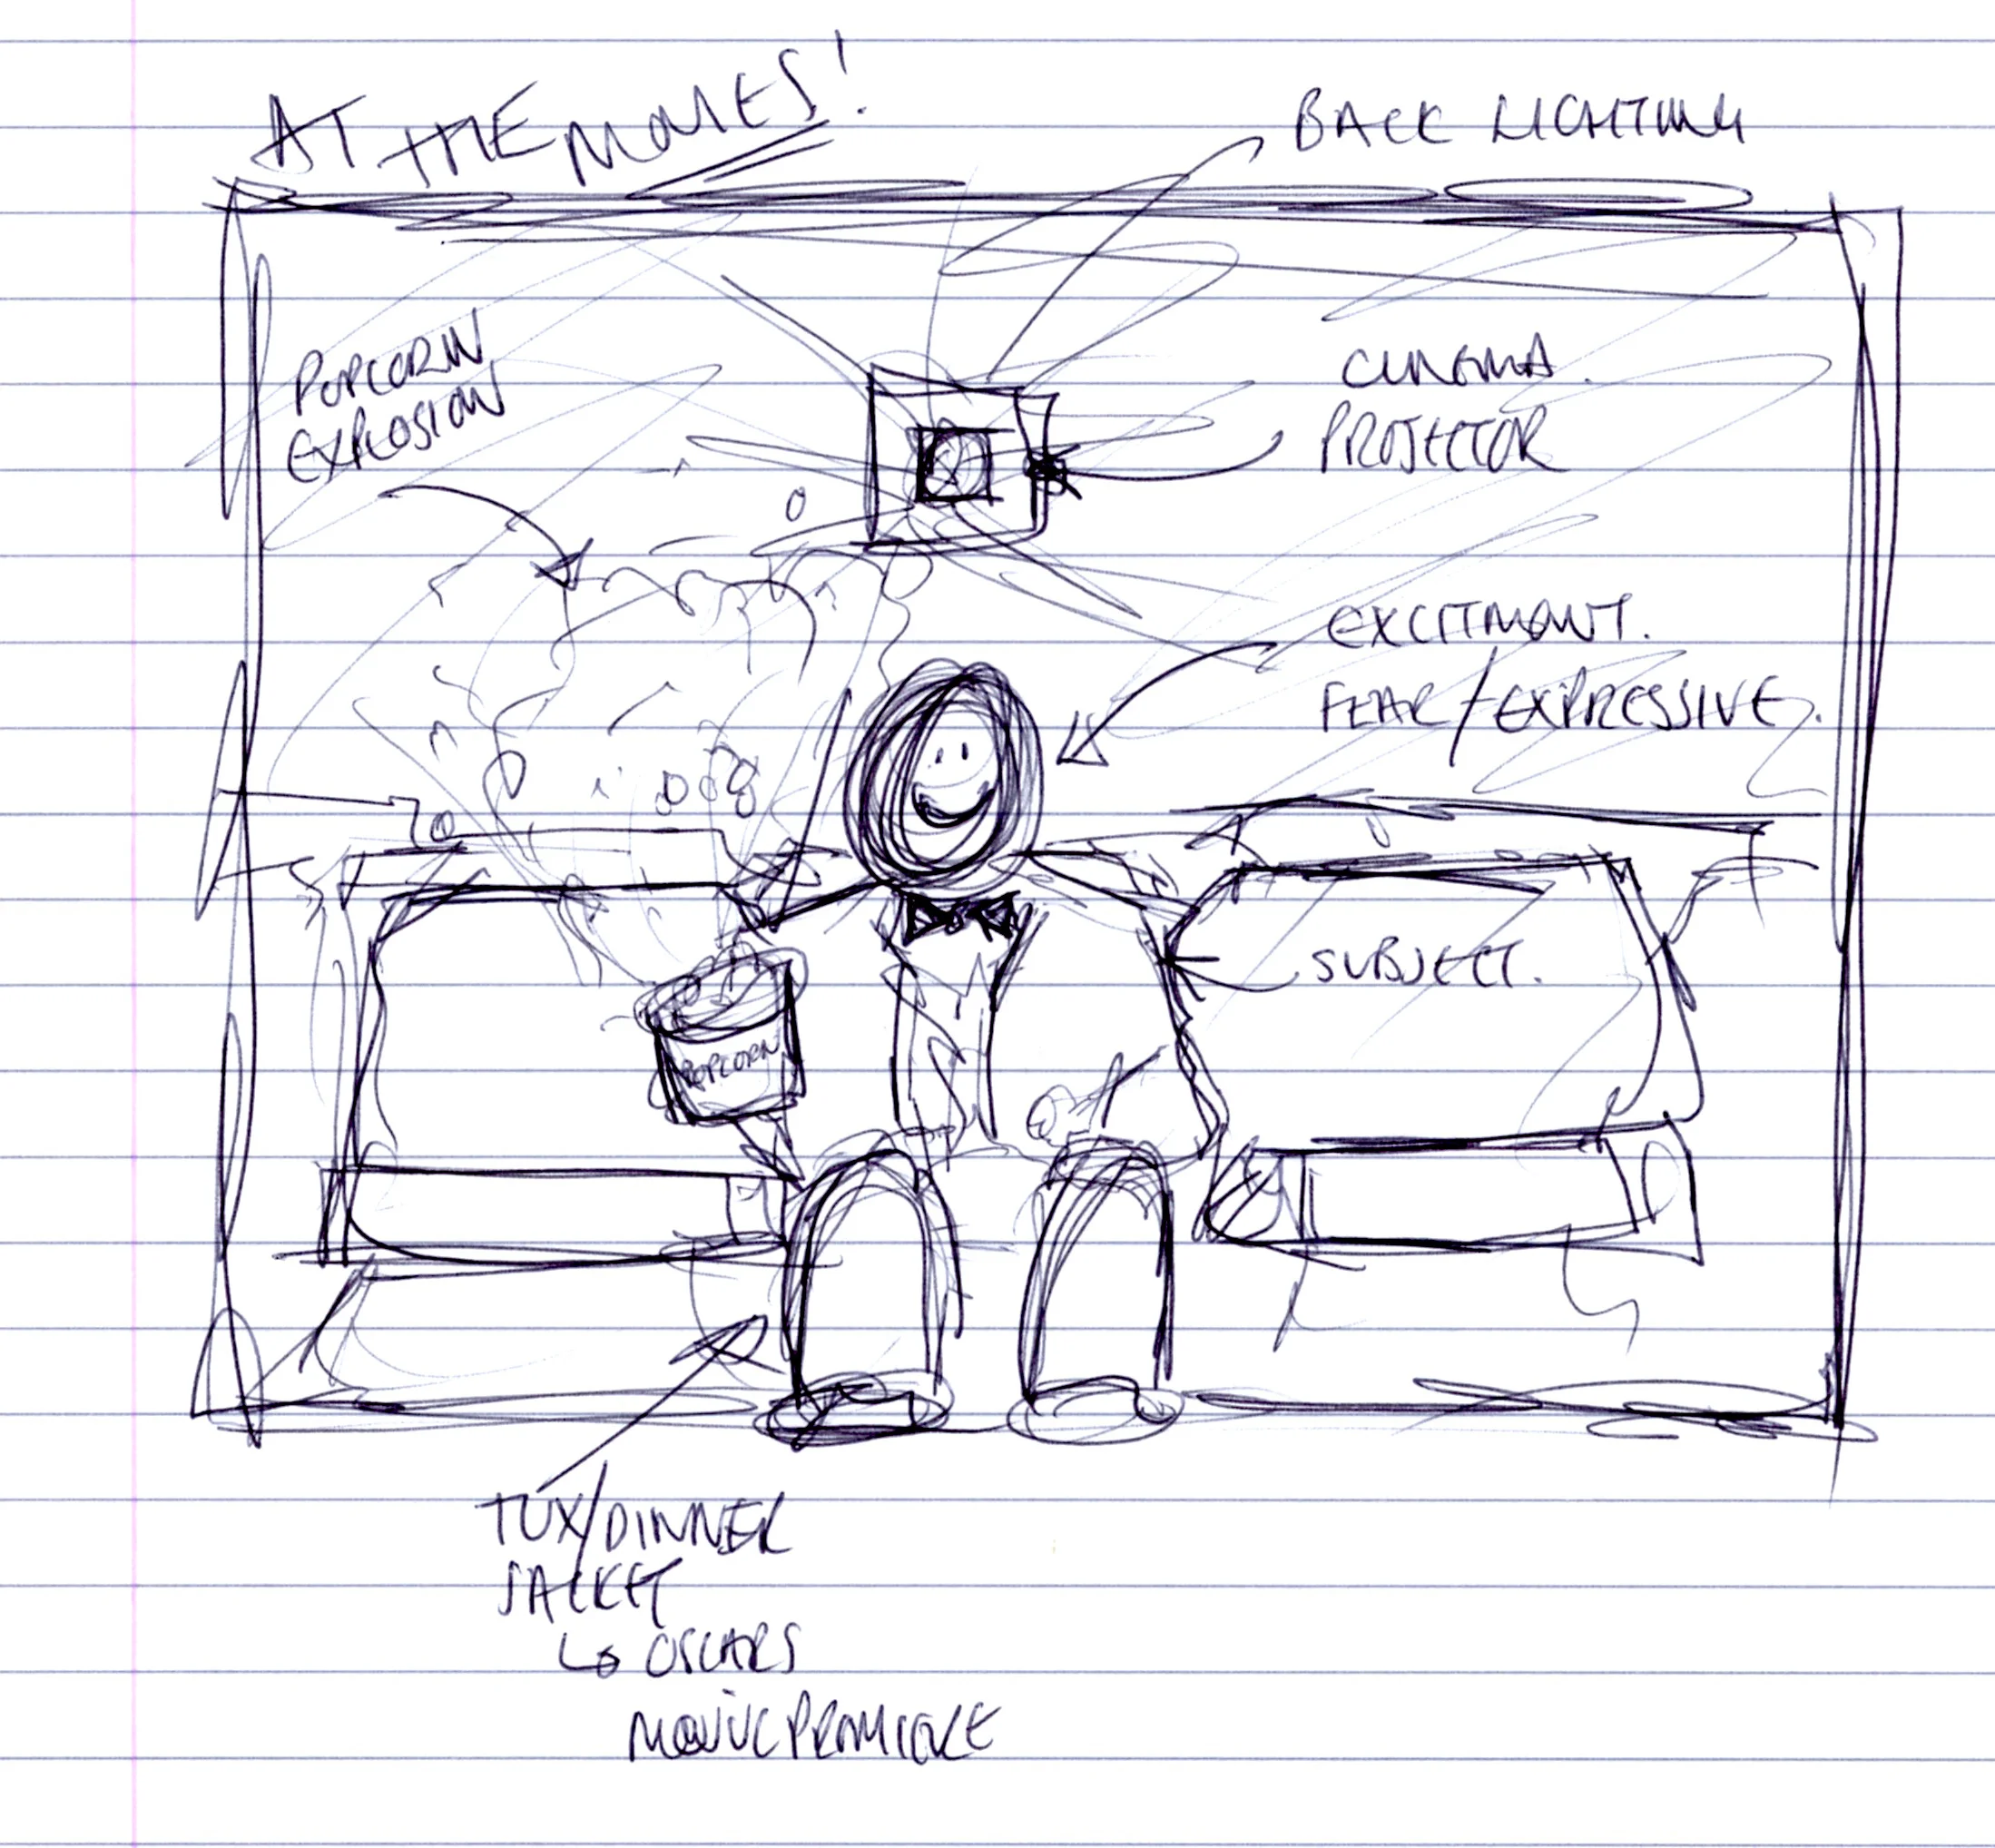 AT THE MOVIES!
BACK LIGHTING
POPCORN
EXPLOSION
CINEMA
PROJECTOR
EXCITMONT.
FEAR/EXPRESSIVE.
SUBJECT.
POPCORN
TUX/DINNER
JACKET
↳ OSCARS
MOVIE PROMIERE